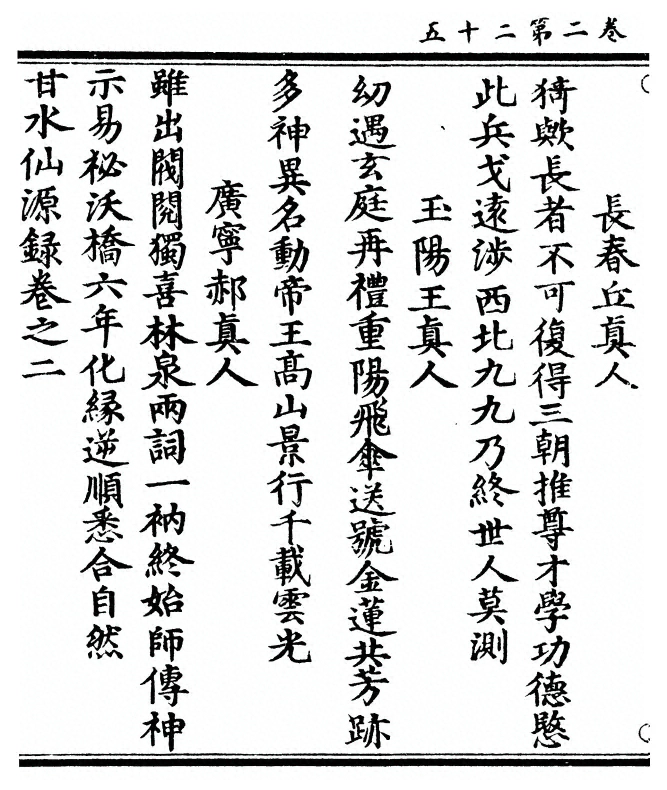 卷二第二十五
長春丘眞人
猗歟長者不可復得三朝推尊才學功德愍
此兵戈遠涉西北九九乃終世人莫測
玉陽王眞人
幼遇玄庭再禮重陽飛傘送號金蓮共芳跡
多神異名動帝王髙山景行千載雲光
廣寧郝眞人
雖出閥閱獨喜林泉兩詞一衲終始師傳神
示易祕沃橋六年化緣逆順悉合自然
甘水仙源録卷之二